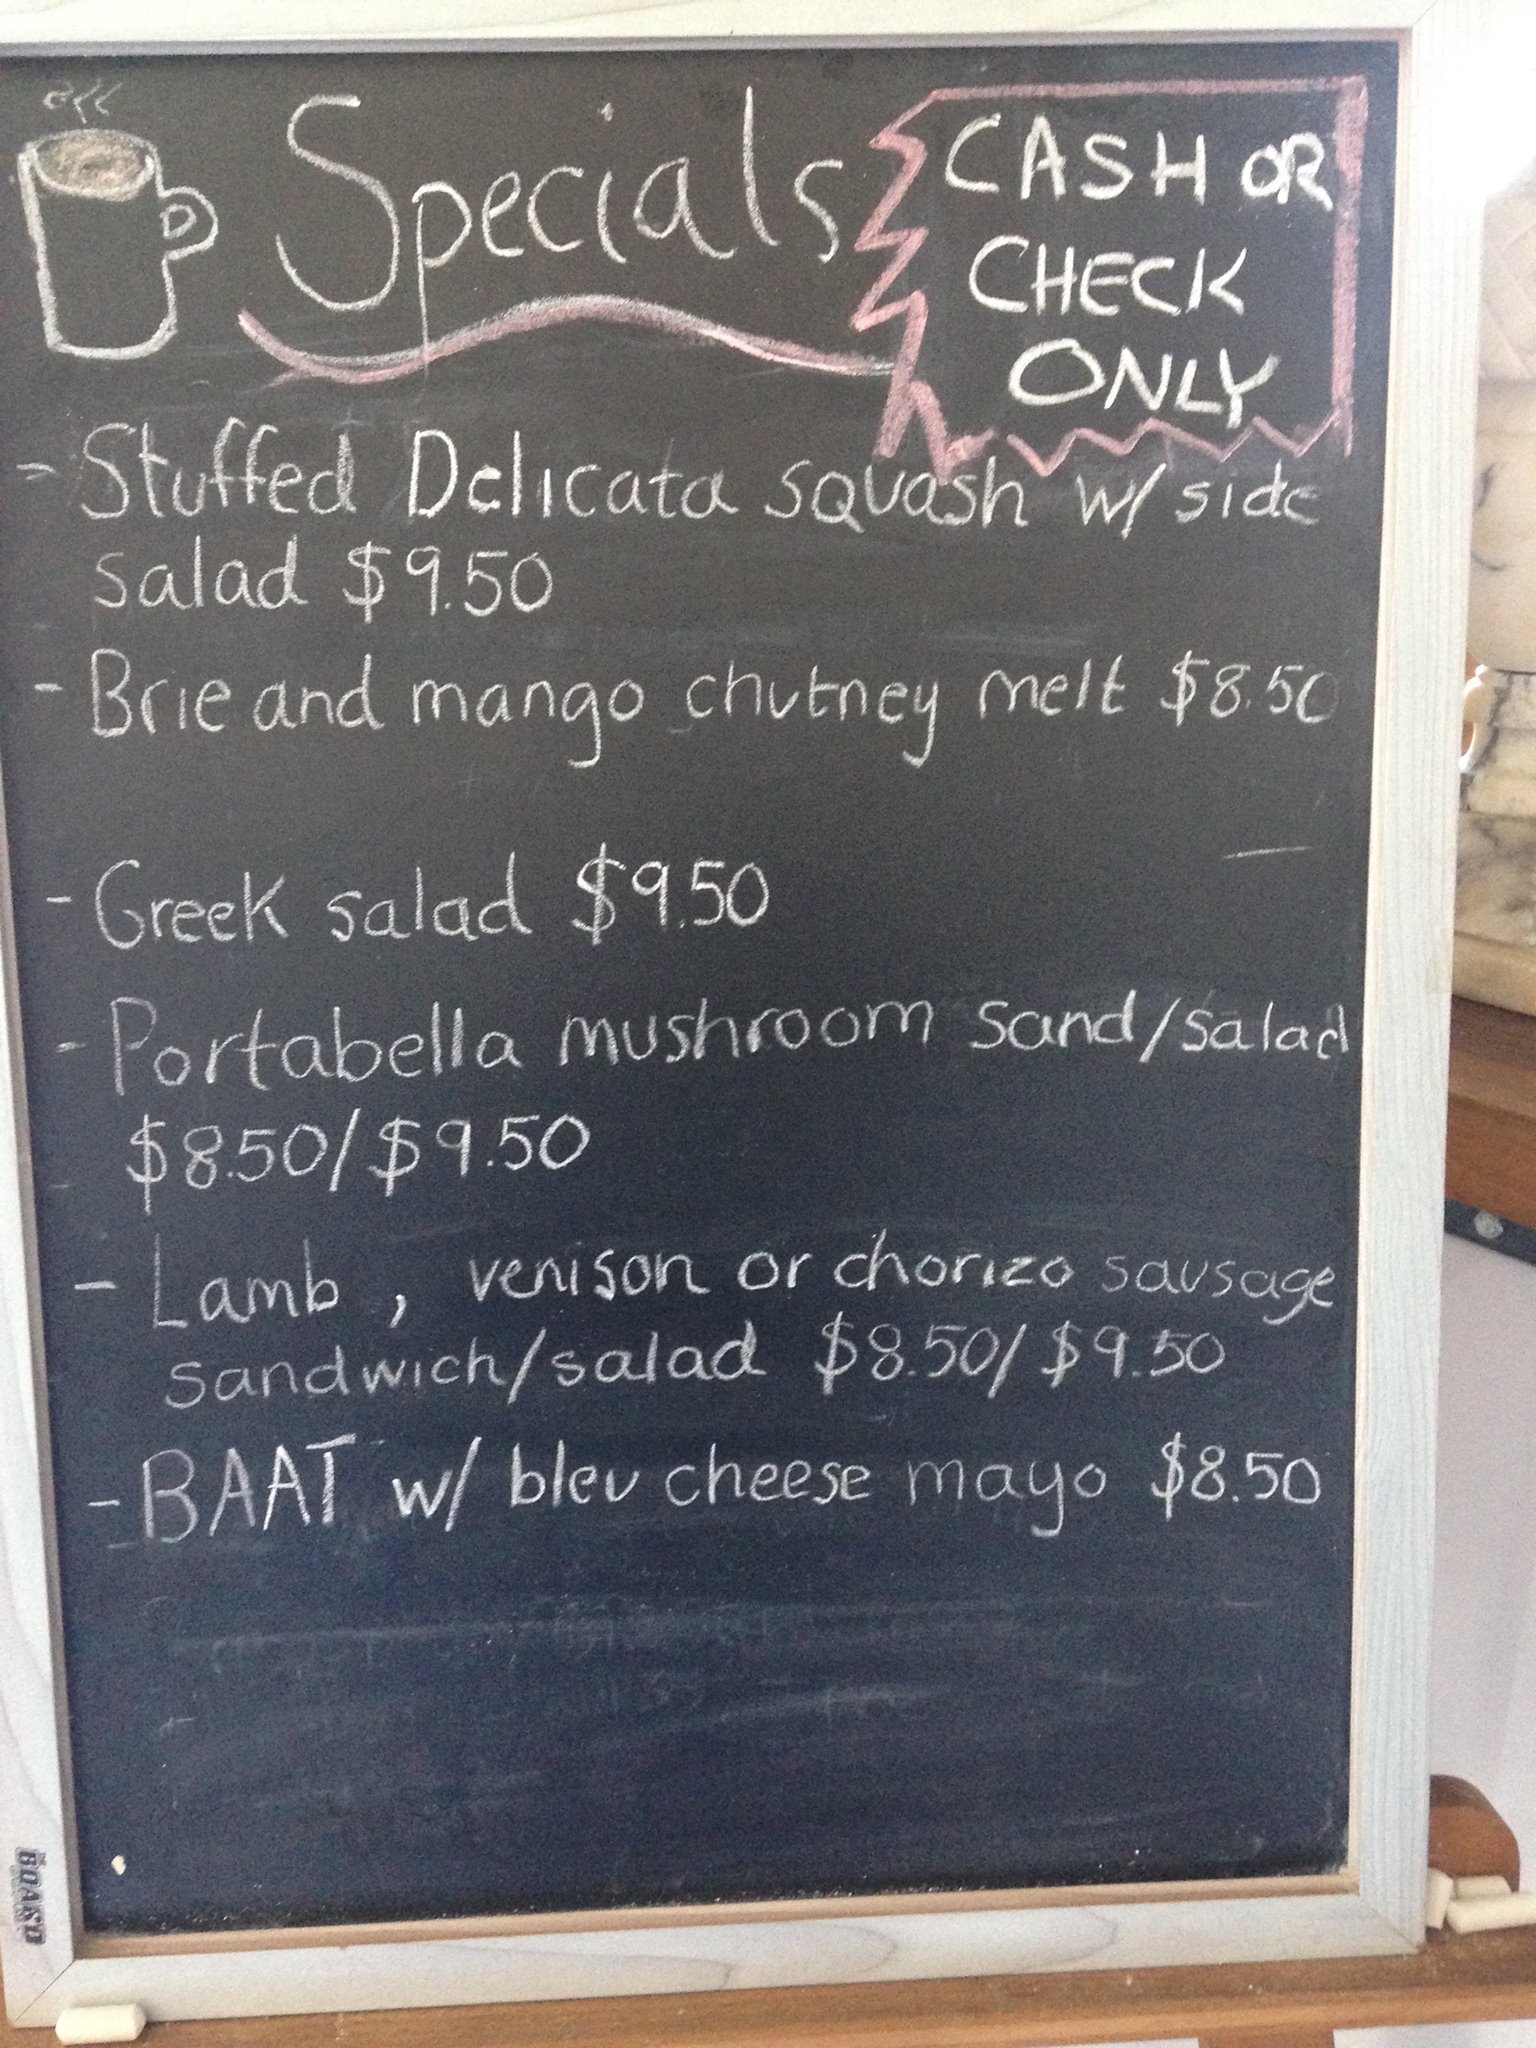 Specials
CASH OR
CHECK
ONLY
- Stuffed Delicata squash w/ side
salad $9.50
- Brie and mango chutney melt $8.50
- Greek salad $9.50
- Portabella mushroom sand/salad
$8.50/$9.50
- Lamb, venison or chorizo sausage
sandwich/salad $8.50/$9.50
- BAAT w/ bleu cheese mayo $8.50
THE BOARD